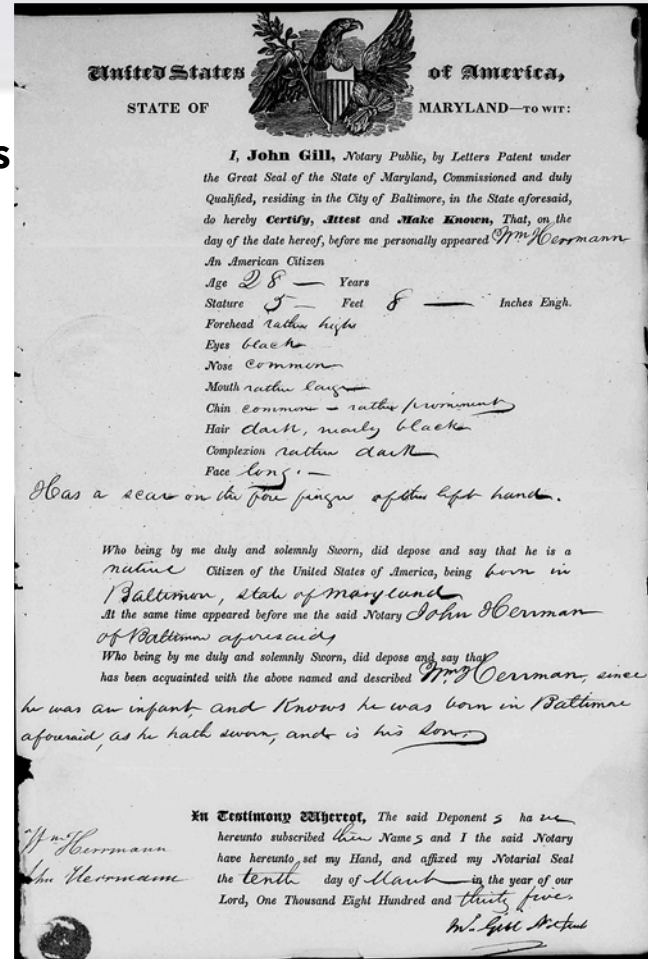 s
United States of America,
STATE OF MARYLAND—TO WIT:
I, John Gill, Notary Public, by Letters Patent under
the Great Seal of the State of Maryland, Commissioned and duly
Qualified, residing in the City of Baltimore, in the State aforesaid,
do hereby Certify, Attest and Make Known, That, on the
day of the date hereof, before me personally appeared Wm Herrmann
An American Citizen
Age 28 — Years
Stature 5 — Feet 8 — Inches Engh.
Forehead rather high
Eyes black
Nose common
Mouth rather large
Chin common – rather prominent
Hair dark, nearly black
Complexion rather dark
Face long. —
Has a scar on the fore finger of the left hand.
Who being by me duly and solemnly Sworn, did depose and say that he is a
native Citizen of the United States of America, being born in
Baltimore, state of Maryland
At the same time appeared before me the said Notary John Herrman
of Baltimore aforesaid,
Who being by me duly and solemnly Sworn, did depose and say that
has been acquainted with the above named and described Wm Herrman, since
he was an infant, and Knows he was born in Baltimore
aforesaid, as he hath sworn, and is his son.
In Testimony Whereof, The said Deponent s have
hereunto subscribed their Name s and I the said Notary
have hereunto set my Hand, and affixed my Notarial Seal
the tenth day of March in the year of our
Lord, One Thousand Eight Hundred and thirty five.
Wm Herrmann
John Herrmann
Gill